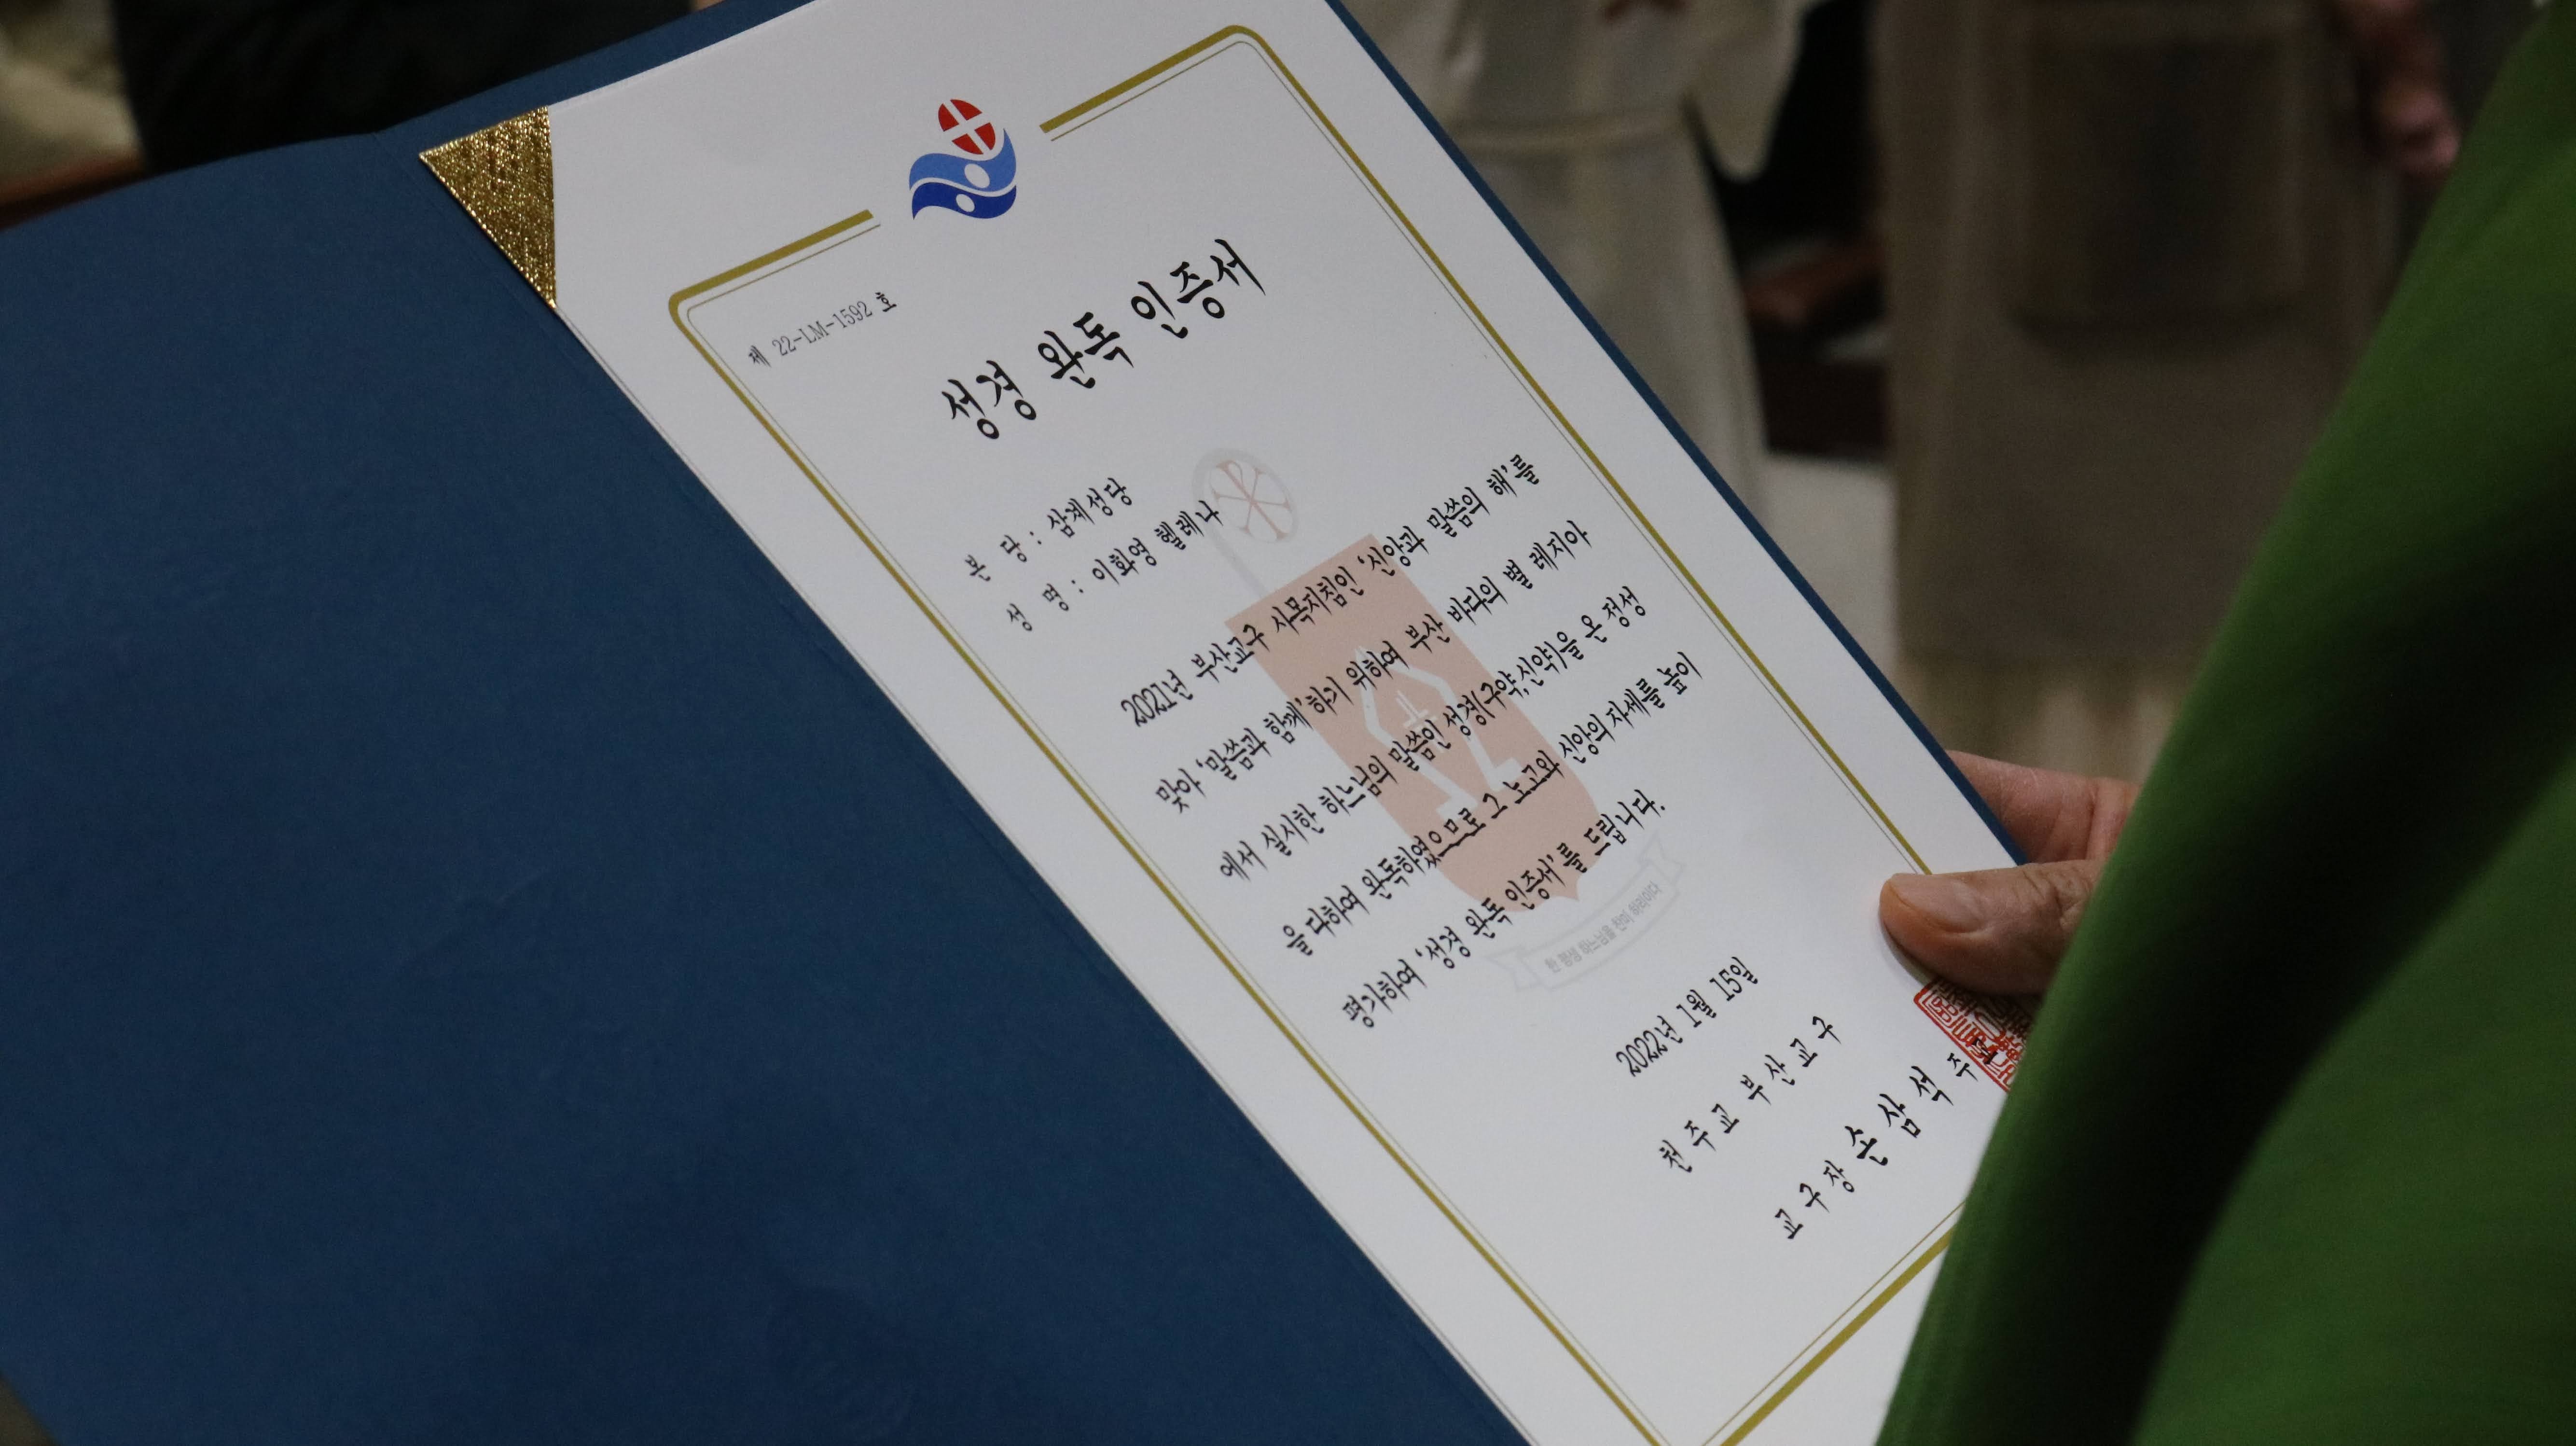 제 22-LM-1592 호
성경 완독 인증서
본 당 : 삼계성당
성 명 : 이화영 헬레나
2021년 부산교구 사목지침인 '신앙과 말씀의 해'를
맞아 '말씀과 함께'하기 위하여 부산 바다의 별 레지아
에서 실시한 하느님의 말씀인 성경(구약,신약)을 온 정성
을 다하여 완독하였으므로 그 노고와 신앙의 자세를 높이
평가하여 '성경 완독 인증서'를 드립니다.
한 평생 하느님을 찬미 하리이다
2022년 1월 15일
천 주 교 부 산 교 구
교 구 장 손 삼 석 주